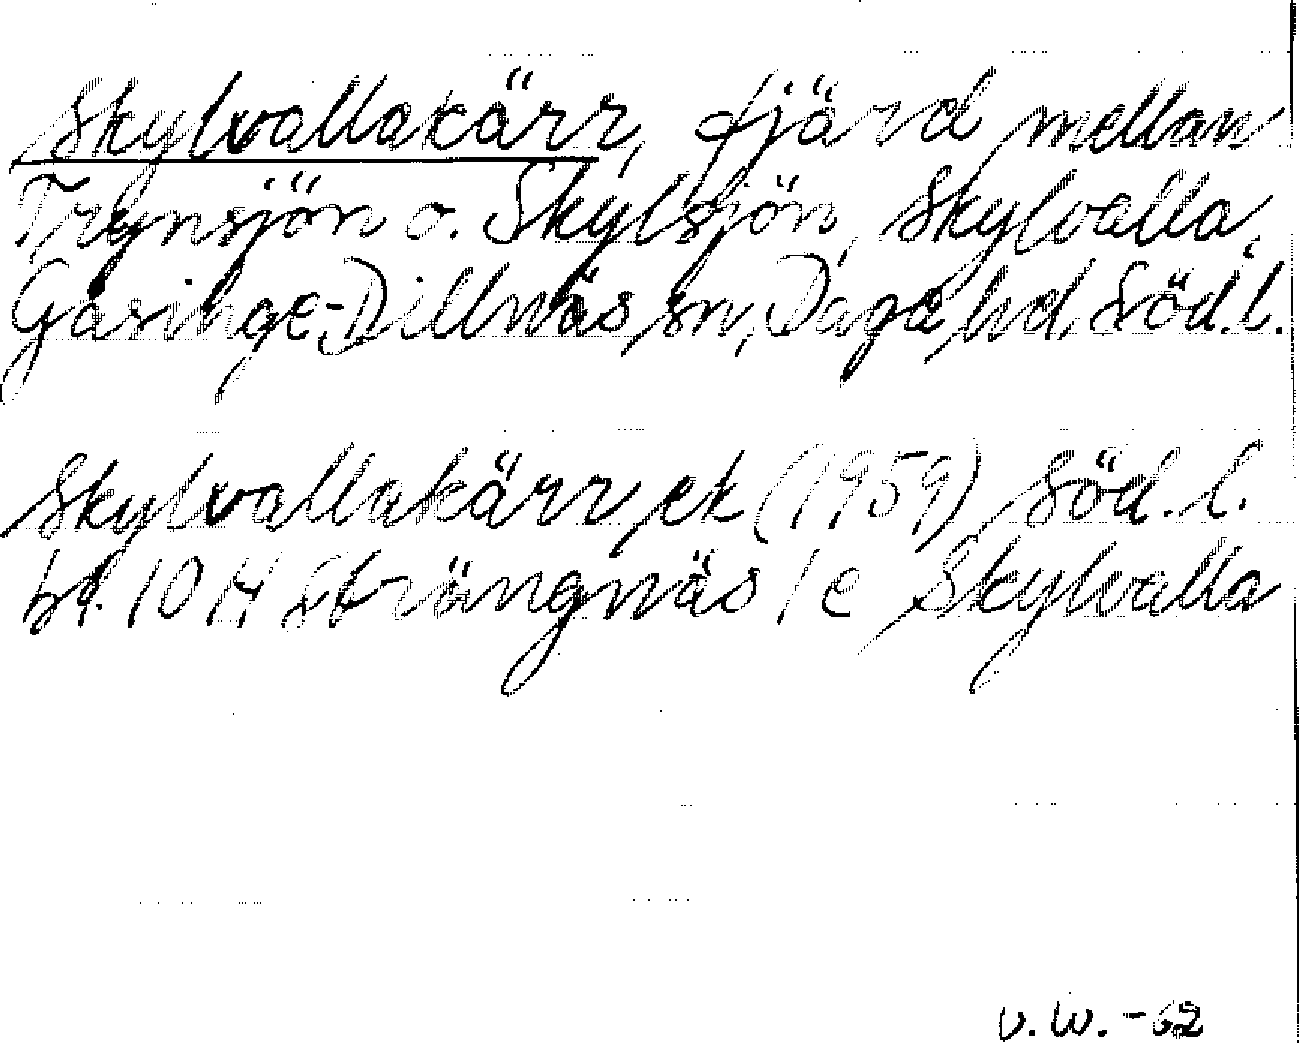 Skylvallakärr, fjärd mellan
Trynsjön o. Skylsjön, Skylvalla,
Gåsinge-Dillnäs sn, Daga hd, Söd.l.
Skylvallakärr, ek (1959) Söd. l.
bl. 10 H Strängnäs 1 e Skylvalla
v.w. - 62